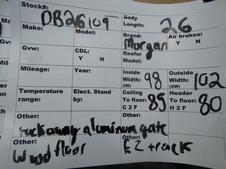 Stock#: DB26109 Body Length: 26
Make: Model: Brand: Morgan Air brakes: Y N
Gvw: CDL: Y N Reefer Model:
Mileage: Year: Inside Width: 98 Outside Width: 102
Temperature range: Elect. Stand by: Ceiling To floor: C 2 F 85 Header To floor: H 2 F 80
Other: tuckaway aluminum gate
Other: Wood floor Other: EZ track